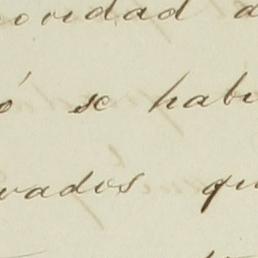 oridad a
ó se habi
vados qu